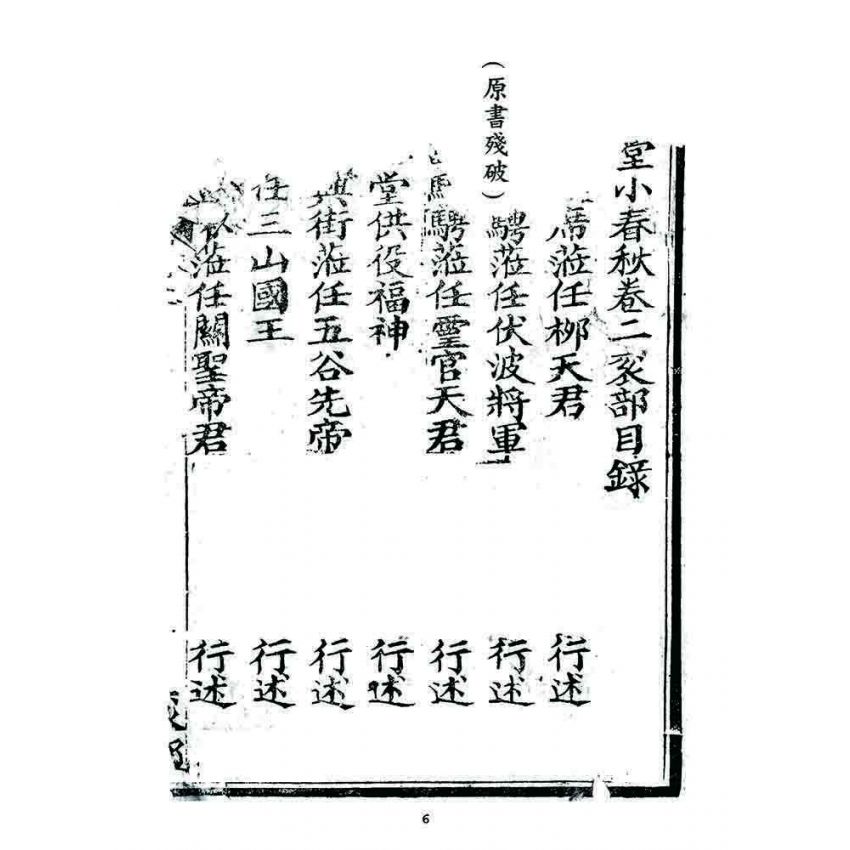 堂小春秋卷二衮部目錄
席蒞任柳天君 行述
(原書殘破)
騁蒞任伏波將軍 行述
騁蒞任靈官天君 行述
堂供役福神 行述
街蒞任五谷先帝 行述
任三山國王 行述
蒞任關聖帝君 行述
6